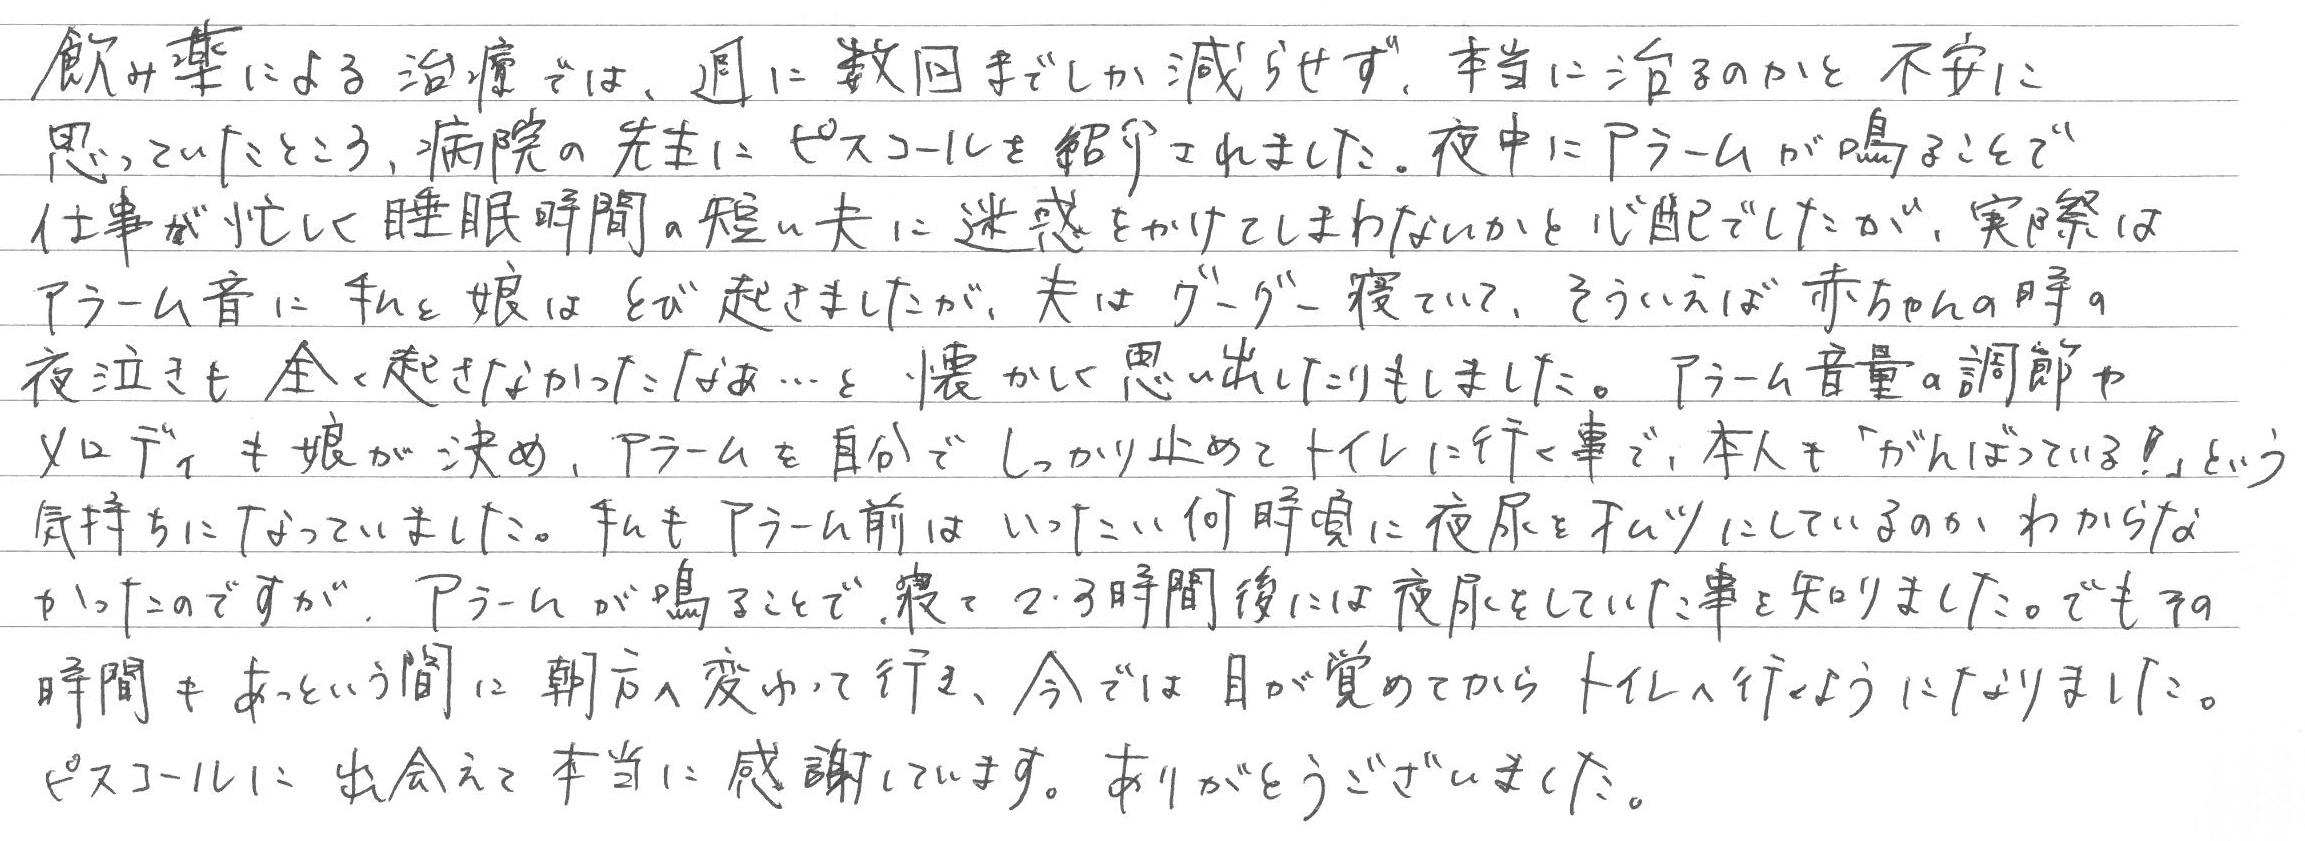 飲み薬による治療では、週に数回までしか減らせず、本当に治るのかと不安に
思っていたところ、病院の先生にピスコールを紹介されました。夜中にアラームが鳴ることで
仕事が忙しく睡眠時間の短い夫に迷惑をかけてしまわないかと心配でしたが、実際は
アラーム音に私と娘はとび起きましたが、夫はグーグー寝ていて、そういえば赤ちゃんの時の
夜泣きも全く起きなかったなぁ…と懐かしく思い出したりもしました。アラーム音量の調節や
メロディも娘が決め、アラームを自分でしっかり止めてトイレに行く事で、本人も「がんばっている!」という
気持ちになっていました。私もアラーム前はいったい何時頃に夜尿をオムツにしているのかわからな
かったのですが、アラームが鳴ることで、寝て2・3時間後には夜尿をしていた事を知りました。でもその
時間もあっという間に朝方へ変わって行き、今では目が覚めてからトイレへ行くようになりました。
ピスコールに出会えて本当に感謝しています。ありがとうございました。